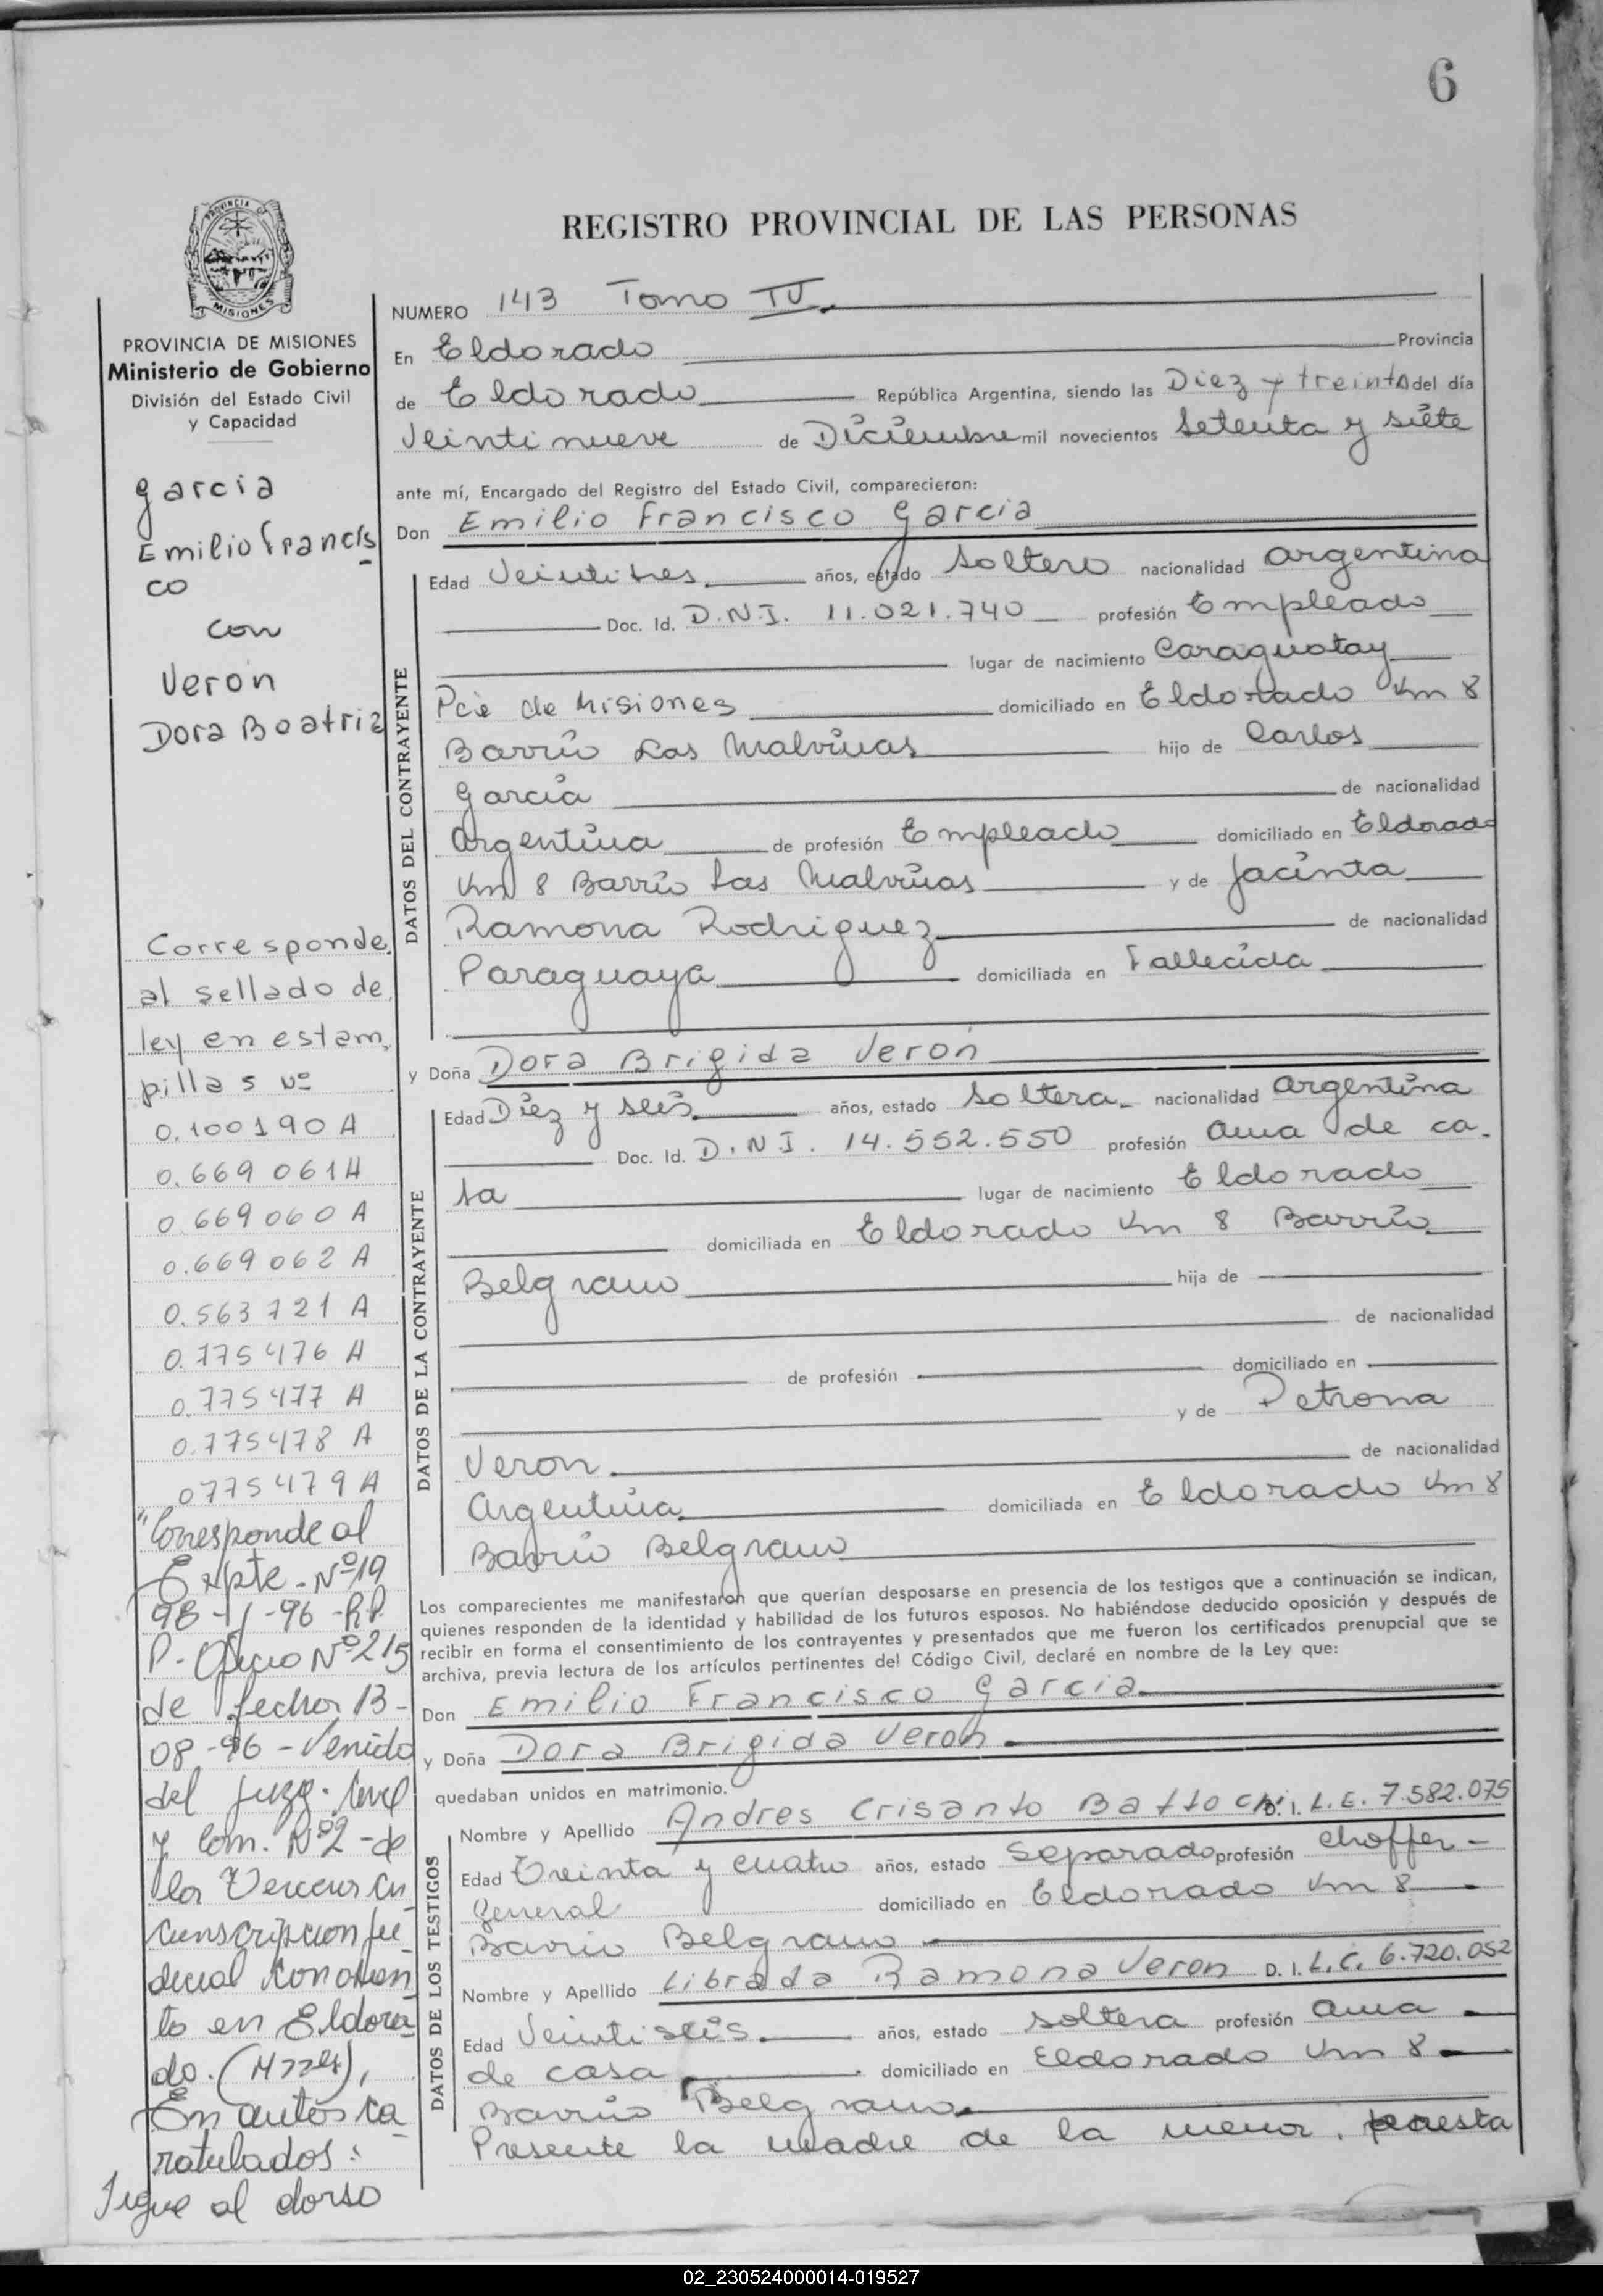 6
PROVINCIA DE
MISIONES
PROVINCIA DE MISIONES
Ministerio de Gobierno
División del Estado Civil
y Capacidad
Garcia
Emilio Francis
co
con
Veron
Dora Beatriz
Corresponde
al sellado de
ley en estam
pillas Nº
0.100190 A
0.669061 A
0.669060 A
0.669062 A
0.563721 A
0.775476 A
0.775477 A
0.775478 A
0775479 A
"Corresponde al
Expte - Nº 19
98-/-96-R.P.
P- Oficio Nº 215
de fecha 13-
08-96 - Venido
del Juzg. Civil
y Com. Nº 2 - de
la Tercera Cir
cunscripcion Ju
dicial con asien
to en Eldora
do. (Mnes),
En autos ca
ratulados:
Sigue al dorso
REGISTRO PROVINCIAL DE LAS PERSONAS
NUMERO 143 Tomo IV
En Eldorado Provincia
de Eldorado República Argentina, siendo las Diez y treinta del día
Veintinueve de Diciembre mil novecientos Setenta y siete
ante mí, Encargado del Registro del Estado Civil, comparecieron:
Don Emilio Francisco Garcia
DATOS DEL CONTRAYENTE
Edad Veintitres años, estado Soltero nacionalidad Argentina
Doc. Id. D.N.I. 11.021.740 profesión Empleado
lugar de nacimiento Caraguatay
Pcia de Misiones domiciliado en Eldorado Km 8
Barrio Las Malvinas hijo de Carlos
Garcia de nacionalidad
Argentina de profesión Empleado domiciliado en Eldorado
Km 8 Barrio Las Malvinas y de Jacinta
Ramona Rodriguez de nacionalidad
Paraguaya domiciliada en Fallecida
y Doña Dora Brigida Veron
DATOS DE LA CONTRAYENTE
Edad Diez y seis años, estado Soltera nacionalidad Argentina
Doc. Id. D.N.I. 14.552.550 profesión Ama de ca-
sa lugar de nacimiento Eldorado
domiciliada en Eldorado Km 8 Barrio
Belgrano hija de
de nacionalidad
de profesión domiciliado en
y de Petrona
Veron de nacionalidad
Argentina domiciliada en Eldorado Km 8
Barrio Belgrano
Los comparecientes me manifestaron que querían desposarse en presencia de los testigos que a continuación se indican,
quienes responden de la identidad y habilidad de los futuros esposos. No habiéndose deducido oposición y después de
recibir en forma el consentimiento de los contrayentes y presentados que me fueron los certificados prenupcial que se
archiva, previa lectura de los artículos pertinentes del Código Civil, declaré en nombre de la Ley que:
Don Emilio Francisco Garcia
y Doña Dora Brigida Veron
quedaban unidos en matrimonio.
DATOS DE LOS TESTIGOS
Nombre y Apellido Andres Crisanto Battochi D.I. L.E. 7.582.075
Edad Treinta y cuatro años, estado Separado profesión choffer -
general domiciliado en Eldorado Km 8
Barrio Belgrano
Nombre y Apellido Librada Ramona Veron D.I. L.C. 6.720.052
Edad Veintiseis años, estado soltera profesión Ama
de casa domiciliado en Eldorado Km 8
Barrio Belgrano
Presente la madre de la menor,
02_230524000014-019527